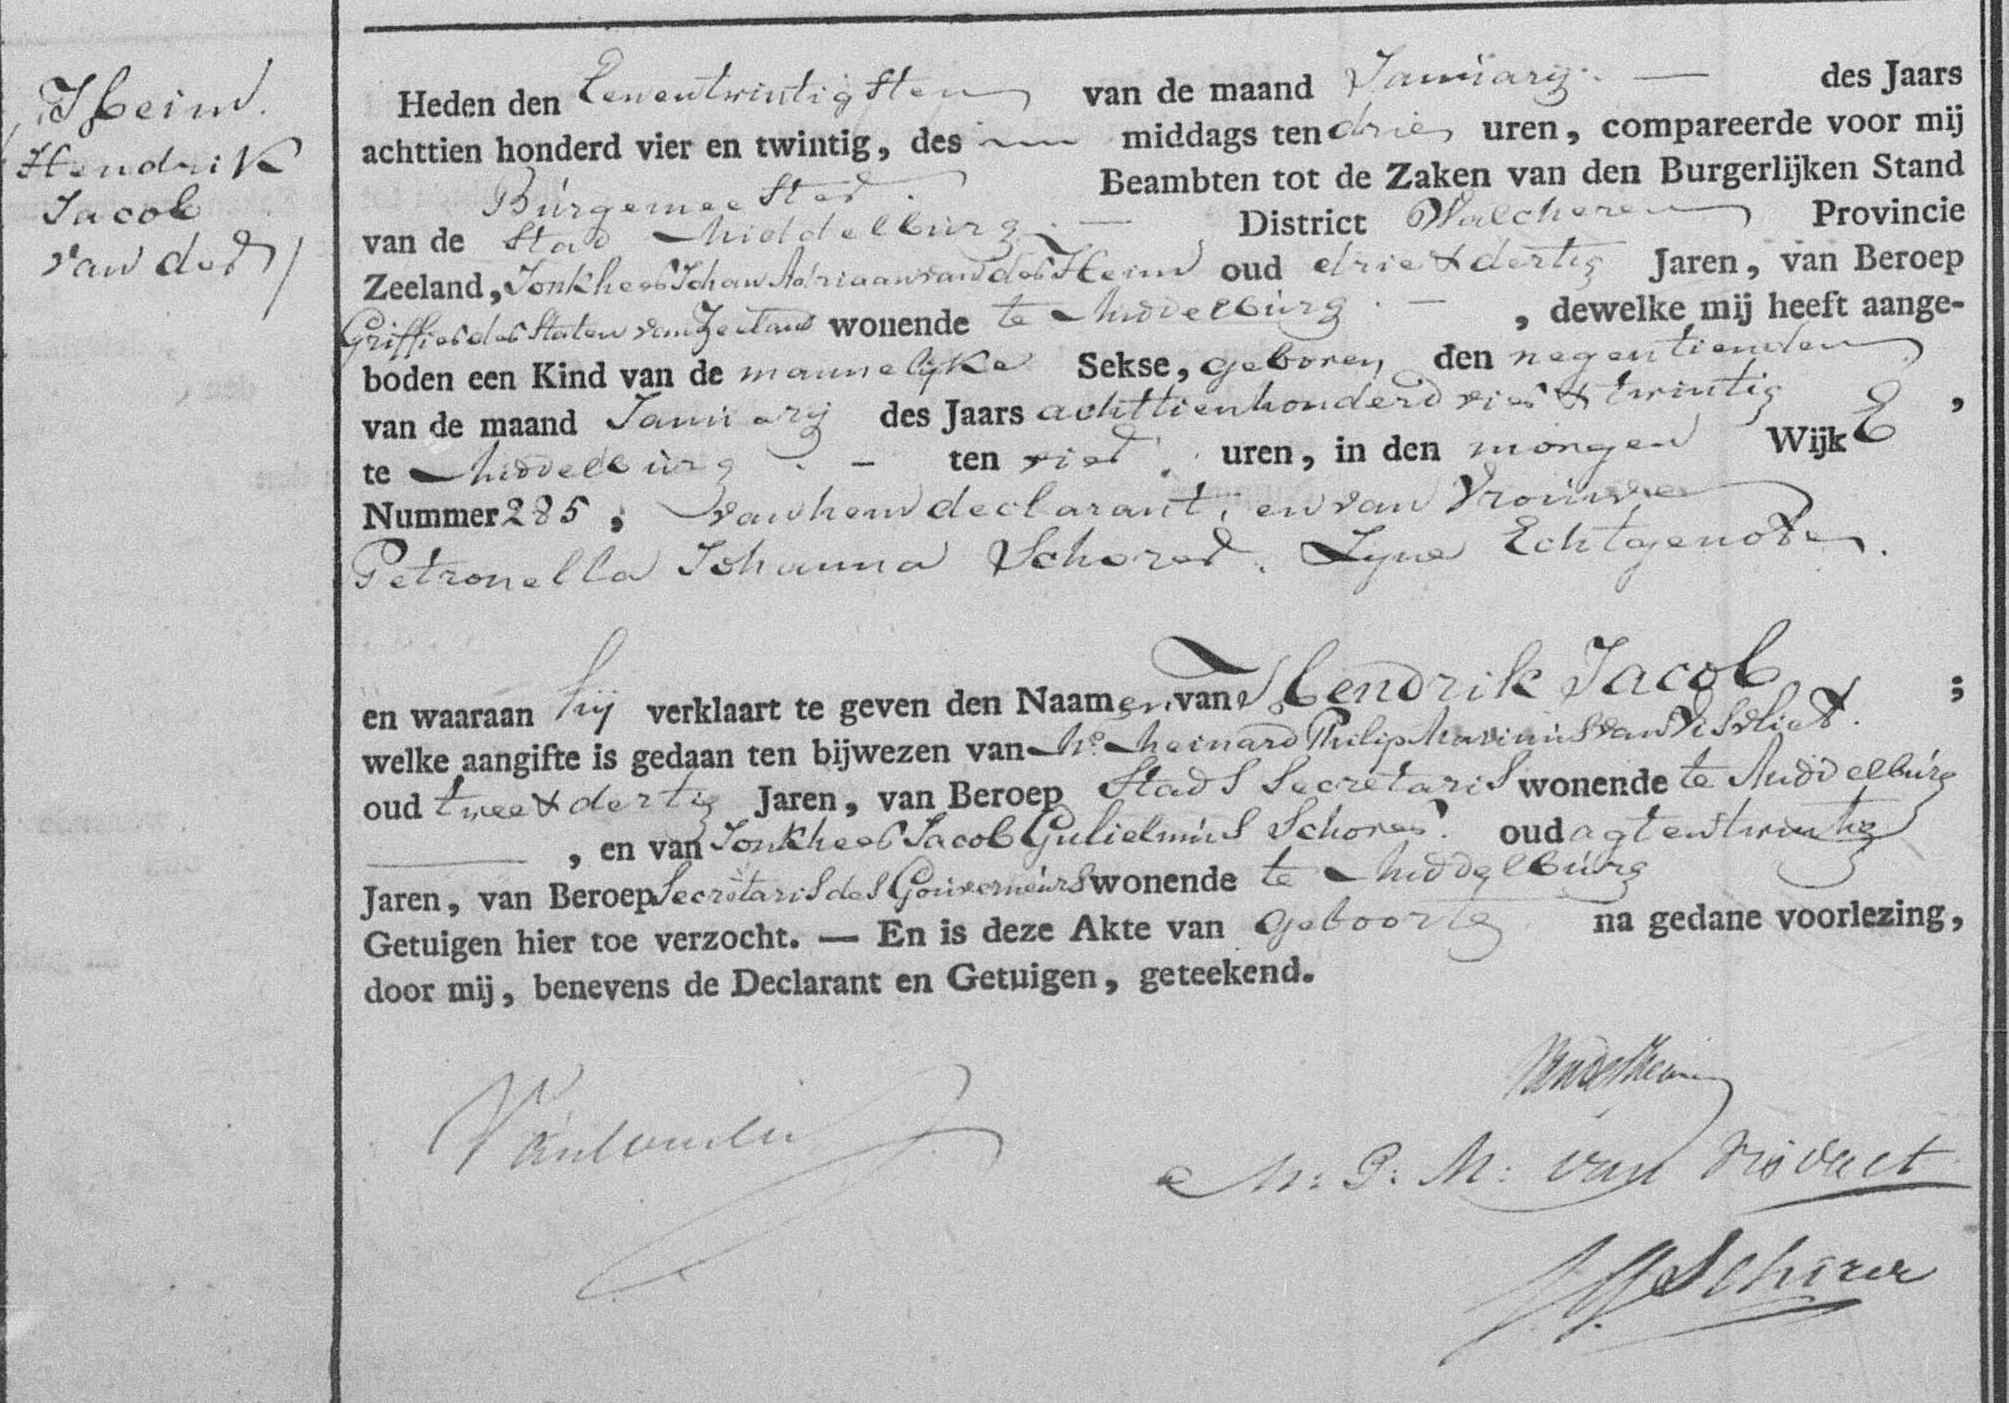 Heim
Hendrik
Jacob
van der
Heden den Eenentwintigsten van de maand Januarij des Jaars
achttien honderd vier en twintig, des na middags ten drie uren, compareerde voor mij
Burgemeester Beambten tot de Zaken van den Burgerlijken Stand
van de Stad Middelburg District Walcheren Provincie
Zeeland, Jonkheer Johan Adriaan van der Heim oud drie & dertig Jaren, van Beroep
Griffier der Staten van Zeeland wonende te Middelburg , dewelke mij heeft aange-
boden een Kind van de mannelijke Sekse, geboren den negentienden
van de maand Januarij des Jaars achttienhonderd vier & twintig ,
te Middelburg ten vier uren, in den morgen Wijk E
Nummer 285 , van hem declarant, en van Vrouwe
Petronella Johanna Schorer. Zyne Echtgenote.
en waaraan hij verklaart te geven den Naamen van Hendrik Jacob ;
welke aangifte is gedaan ten bijwezen van Mr. Meinard Philip Marinus van Visvliet.
oud twee & dertig Jaren, van Beroep Stads Secretaris wonende te Middelburg
, en van Jonkheer Jacob Gulielmus Schorer. oud agtentwintig
Jaren, van Beroep Secretaris des Gouverneurs wonende te Middelburg
Getuigen hier toe verzocht. — En is deze Akte van geboorte na gedane voorlezing,
door mij, benevens de Declarant en Getuigen, geteekend.
van der Heim
M: P: M: van Visvliet
J G Schorer